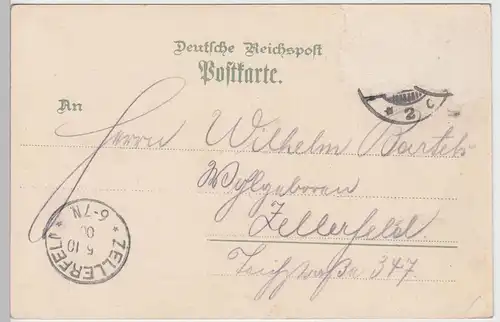 Deutsche Reichspost
Postkarte.
An
Herrn Wilhelm Bartels
Wohlgeboren
Zellerfeld.
347
* 2 c
* ZELLERFELD *
5 10
00
6-7N